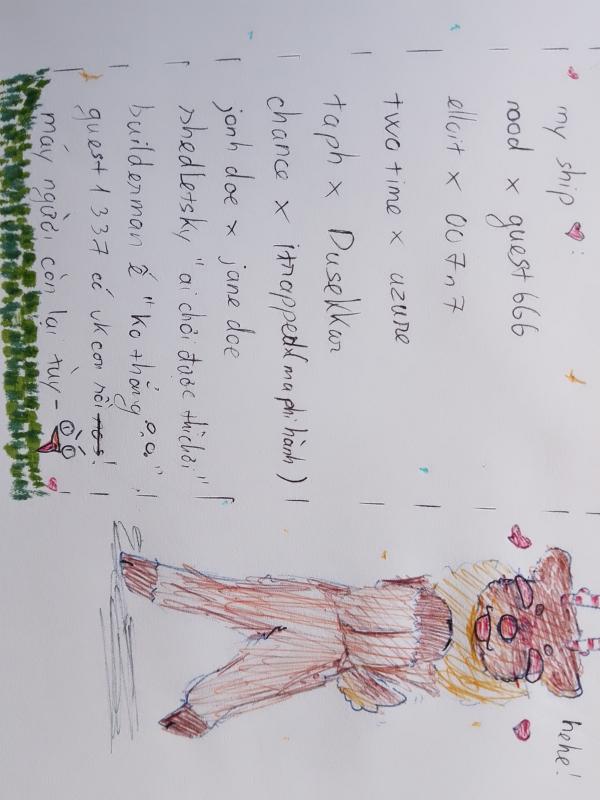 my ship ♥:
nood x guest 666
elloit x 007n7
two time x azure
taph x Dusekkar
chance x itrapped (ma phi hành)
jonh doe x jane doe
shedletsky "ai chơi được thì chơi"
builderman ế "ko thằng
guest 1337 có vk con rồi !
mấy người còn lại tùy -
hehe!